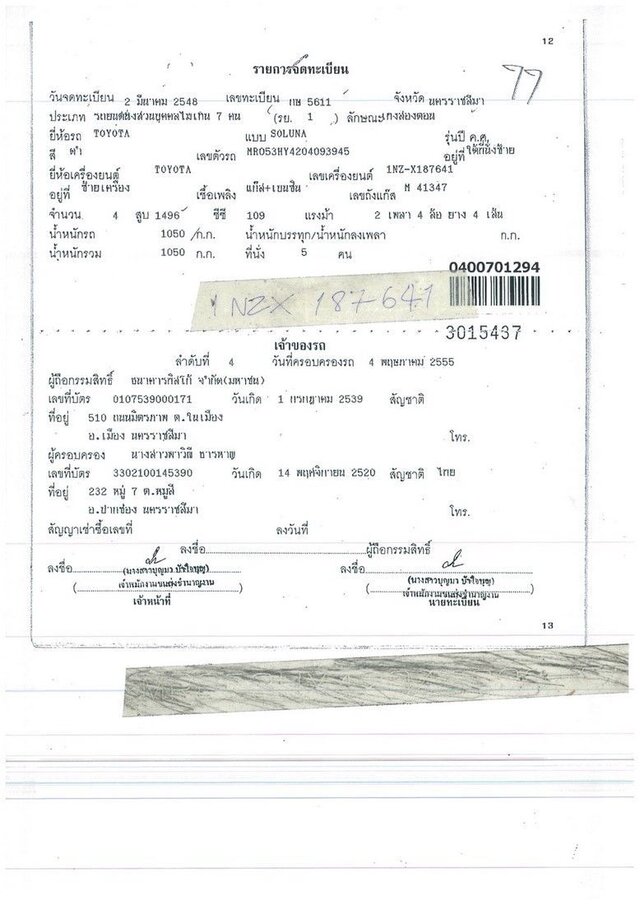 12
รายการจดทะเบียน
77
วันจดทะเบียน 2 มีนาคม 2548 เลขทะเบียน กษ 5611 จังหวัด นครราชสีมา
ประเภท รถยนต์นั่งส่วนบุคคลไม่เกิน 7 คน (รย. 1 ) ลักษณะ เก๋งสองตอน
ยี่ห้อรถ TOYOTA แบบ SOLUNA รุ่นปี ค.ศ.
สี ดำ เลขตัวรถ MR053HY4204093945 อยู่ที่ ใต้ที่นั่งซ้าย
ยี่ห้อเครื่องยนต์ TOYOTA เลขเครื่องยนต์ 1NZ-X187641
อยู่ที่ ซ้ายเครื่อง เชื้อเพลิง แก๊ส+เบนซิน เลขถังแก๊ส M 41347
จำนวน 4 สูบ 1496 ซีซี 109 แรงม้า 2 เพลา 4 ล้อ ยาง 4 เส้น
น้ำหนักรถ 1050 ก.ก. น้ำหนักบรรทุก/น้ำหนักลงเพลา ก.ก.
น้ำหนักรวม 1050 ก.ก. ที่นั่ง 5 คน
0400701294
1NZX 187641
3015437
เจ้าของรถ
ลำดับที่ 4 วันที่ครอบครองรถ 4 พฤษภาคม 2555
ผู้ถือกรรมสิทธิ์ ธนาคารทิสโก้ จำกัด(มหาชน)
เลขที่บัตร 0107539000171 วันเกิด 1 กรกฎาคม 2539 สัญชาติ
ที่อยู่ 510 ถนนมิตรภาพ ต.ในเมือง
อ.เมือง นครราชสีมา โทร.
ผู้ครอบครอง นางสาวพาวิณี ธารหาญ
เลขที่บัตร 3302100145390 วันเกิด 14 พฤศจิกายน 2520 สัญชาติ ไทย
ที่อยู่ 232 หมู่ 7 ต.หมูสี
อ.ปากช่อง นครราชสีมา โทร.
สัญญาเช่าซื้อเลขที่ ลงวันที่
ลงชื่อ ผู้ถือกรรมสิทธิ์
ลงชื่อ ลงชื่อ
(นางสาวบุญมา ปัจใจบุญ) (นางสาวบุญมา ปัจใจบุญ)
เจ้าพนักงานขนส่งชำนาญงาน เจ้าพนักงานขนส่งชำนาญงาน
เจ้าหน้าที่ นายทะเบียน
13